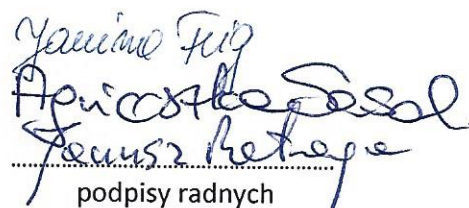 Janina Fug
Agnieszka Sasal
Janusz
podpisy radnych